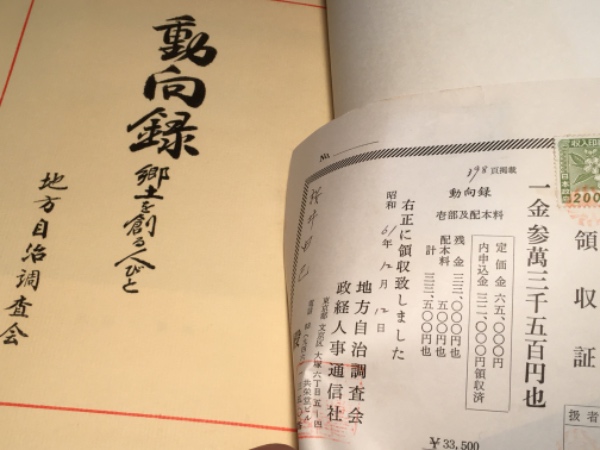 動向録
郷土を創る人びと
地方自治調査会
No.
領収証
収入印紙
200
扱者
一金 参萬三千五百円也
定価金 六五、〇〇〇円
内申込金 三二、〇〇〇円領収済
398頁掲載
動向録
壱部及配本料
残金 三三、〇〇〇円也
配本料 五〇〇円也
計 三三、五〇〇円也
¥33,500
右正に領収致しました
昭和61年12月12日
地方自治調査会
政経人事通信社
東京都文京区大塚六丁目五ー四
殿